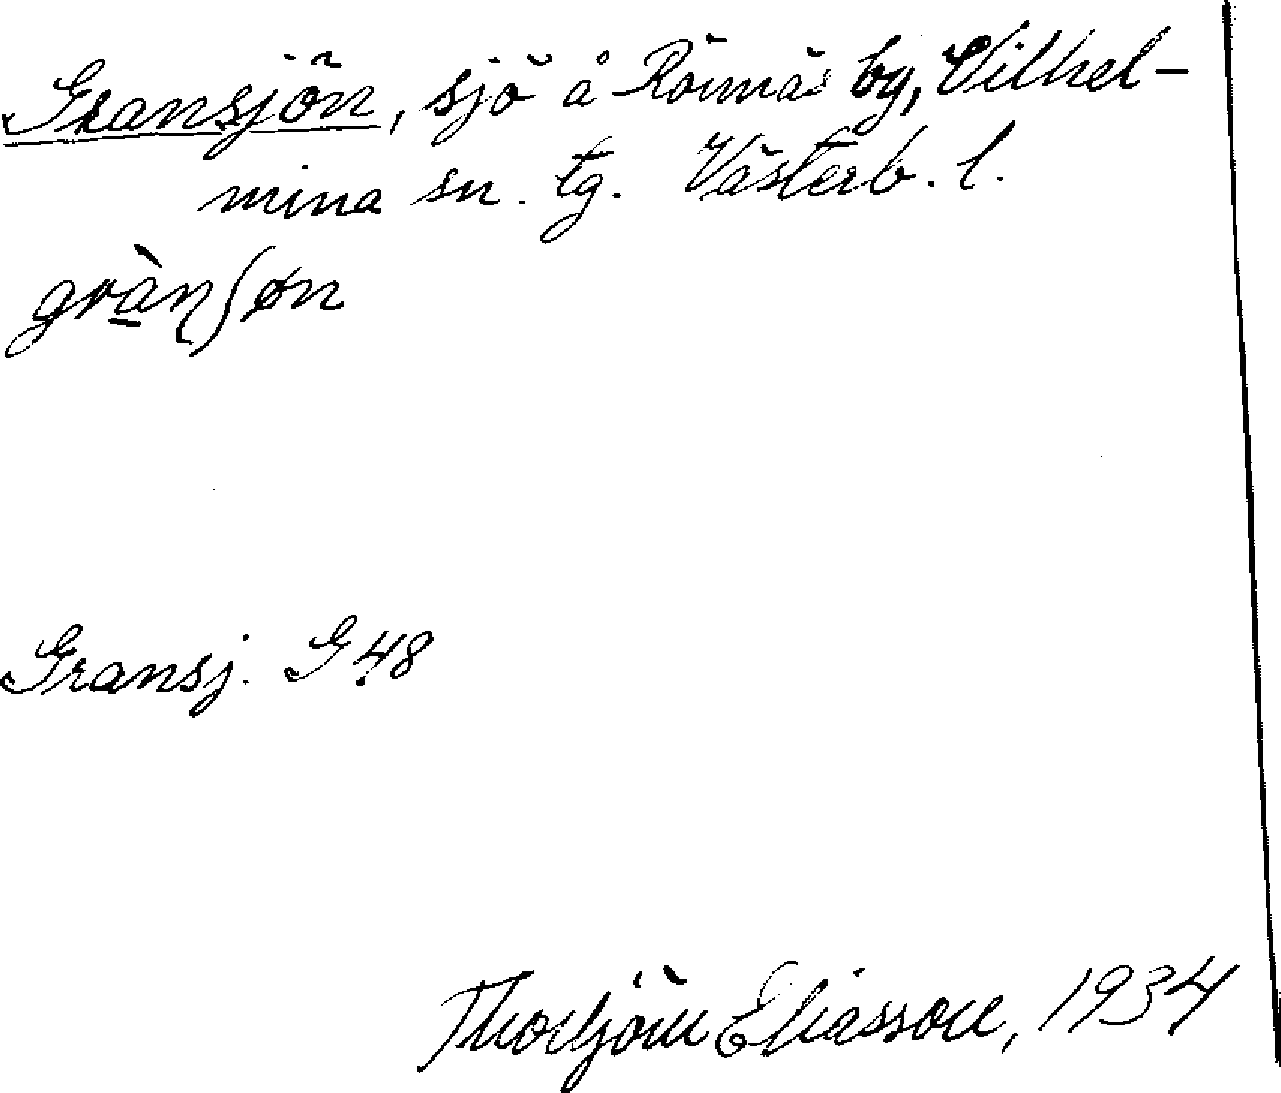 Gransjön, sjö å Rönnäs by, Vilhel-
mina sn. tg. Västerb. l.
grànʃøn
Gransj. G 48
Thorbjörn Eliasson, 1934